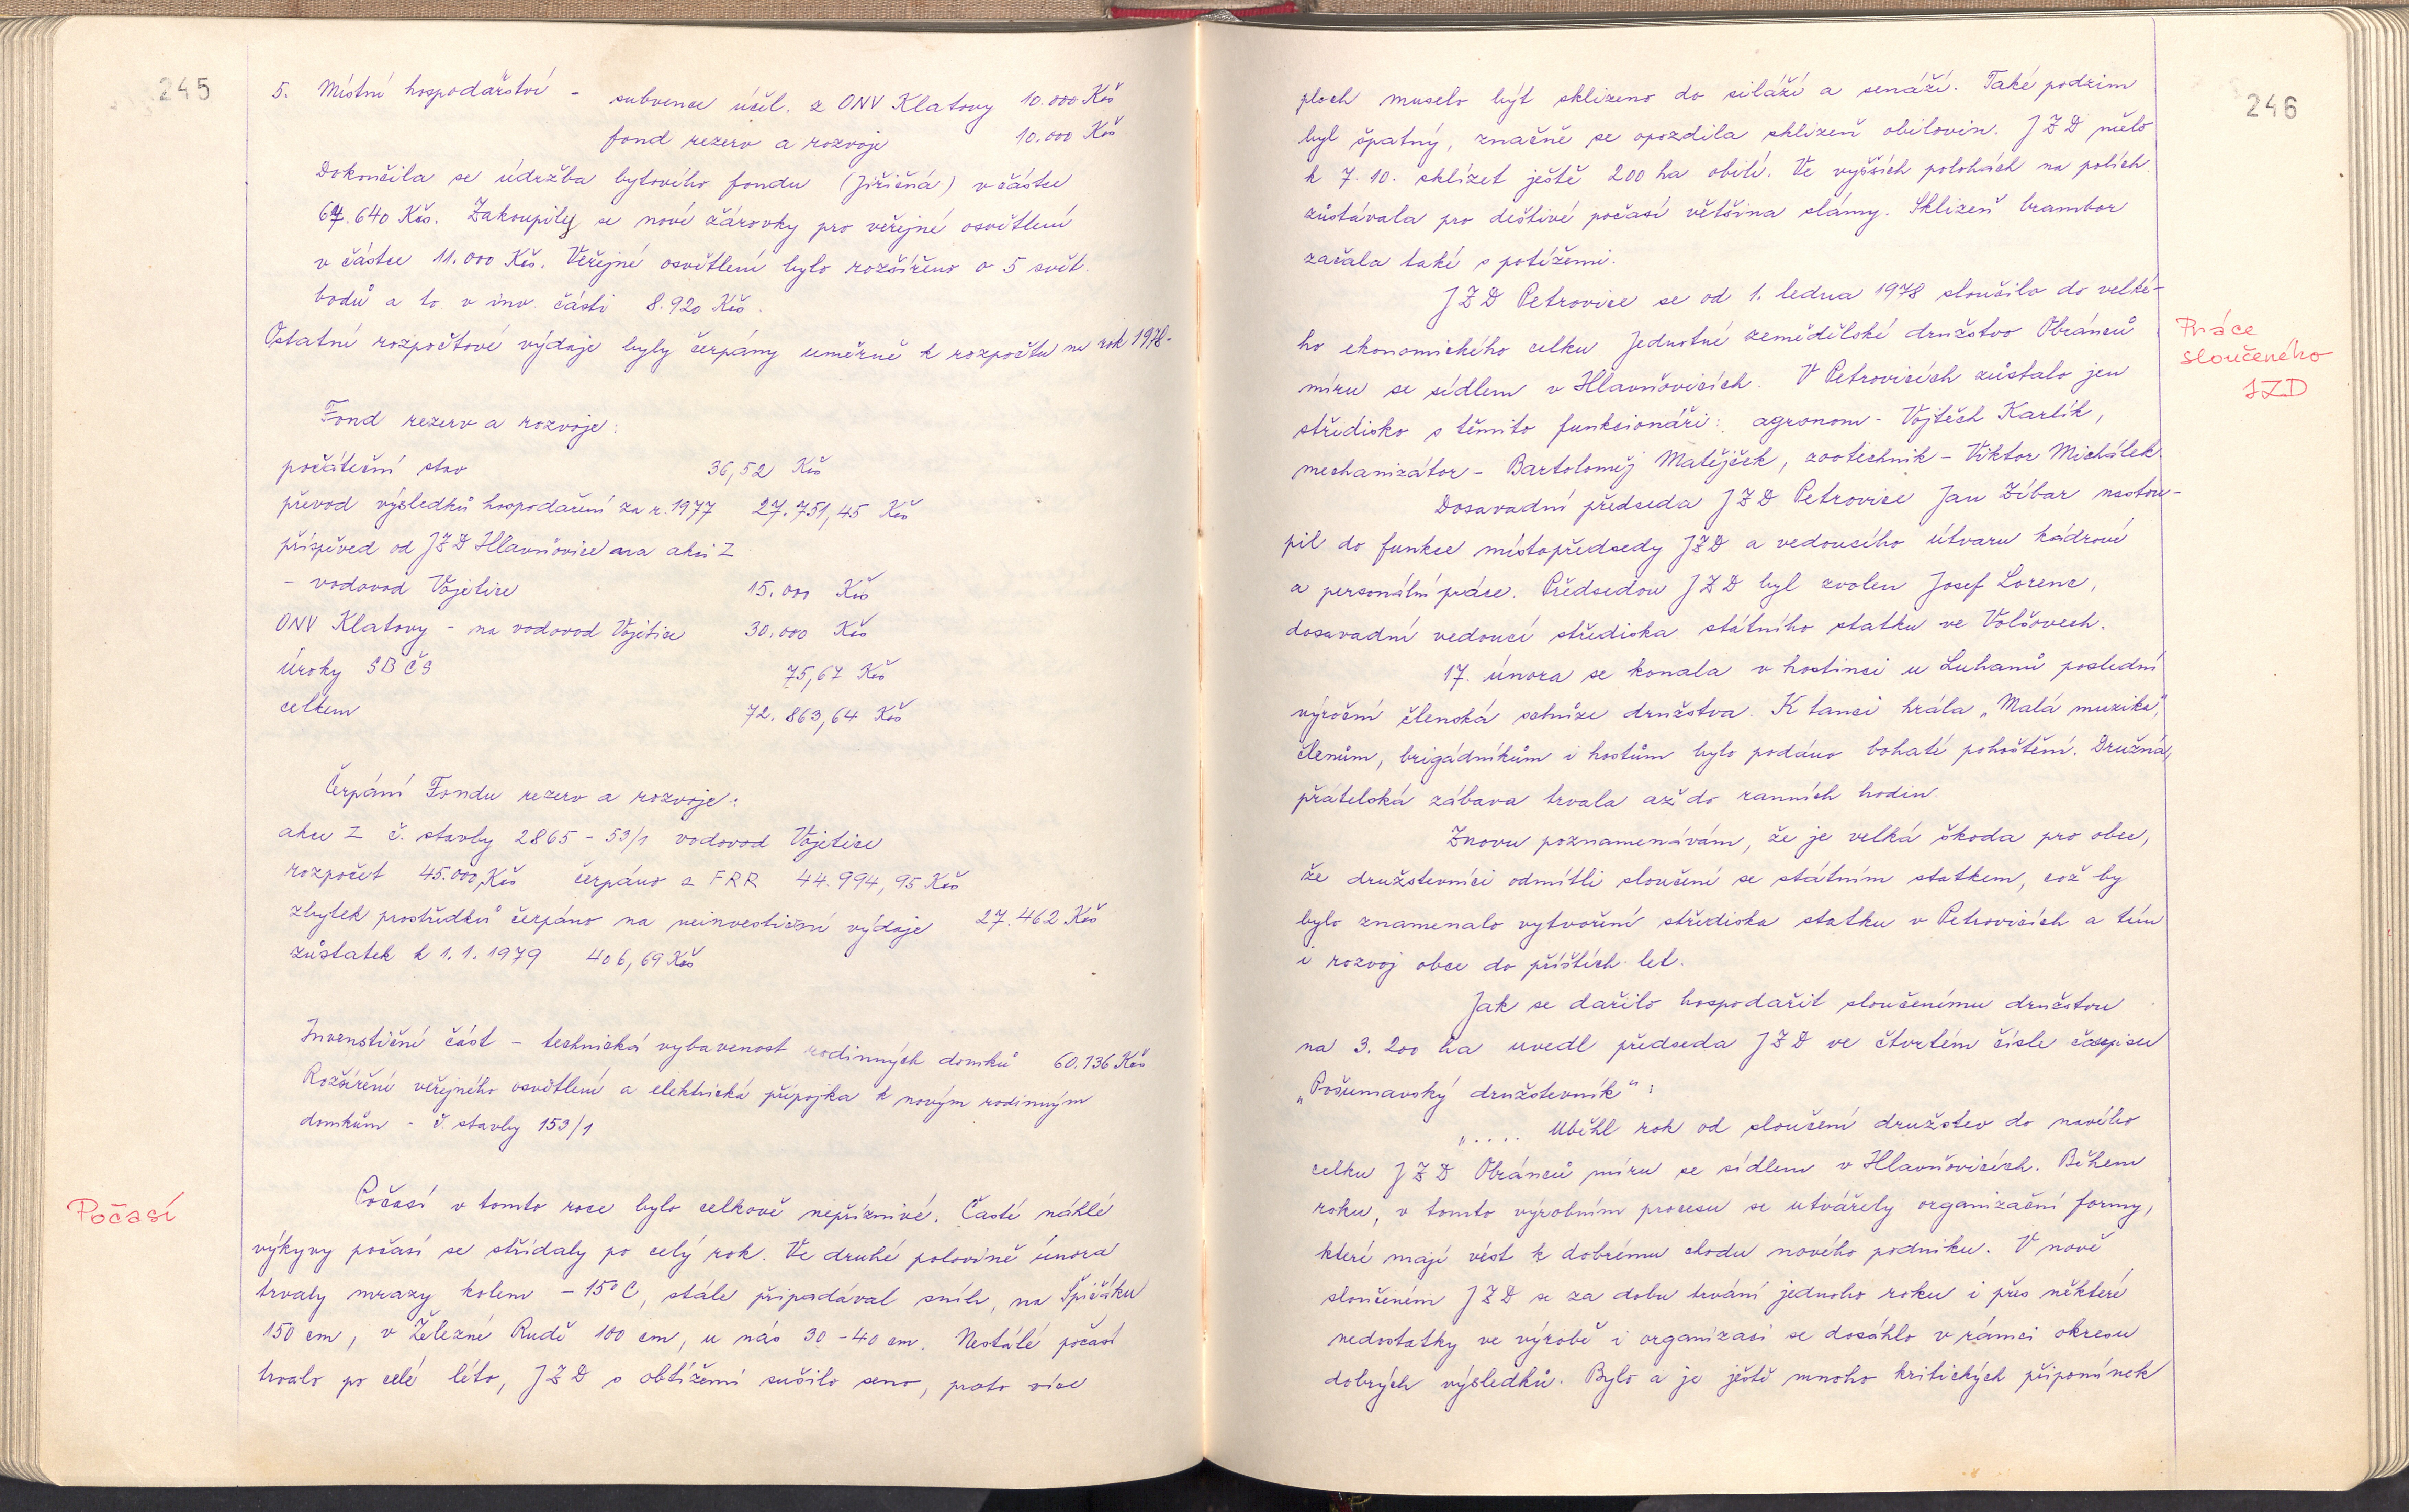 245
5. Místní hospodářství - subvence účel. z ONV Klatovy 10.000 Kčs
fond rezerv a rozvoje 10.000 Kčs
Dokončila se údržba bytového fondu (Jiřičná) v částce
67.640 Kčs. Zakoupily se nové žárovky pro veřejné osvětlení
v částce 11.000 Kčs. Veřejné osvětlení bylo rozšířeno o 5 svět.
bodů a to v inv. části 8.920 Kčs.
Ostatní rozpočtové výdaje byly čerpány úměrně k rozpočtu na rok 1978.
Fond rezerv a rozvoje:
počáteční stav 36,52 Kčs
převod výsledků hospodaření za r. 1977 27.751,45 Kčs
příspěved od JZD Hlavňovice na akci Z
- vodovod Vojetice 15.000 Kčs
ONV Klatovy - na vodovod Vojetice 30.000 Kčs
úroky SBČS 75,67 Kčs
celkem 72.863,64 Kčs
Čerpání Fondu rezerv a rozvoje:
akce Z č. stavby 2865 - 53/1 vodovod Vojetice
rozpočet 45.000,Kčs čerpáno z FRR 44.994,95 Kčs
zbytek prostředků čerpáno na neinvestiční výdaje 27.462 Kčs
zůstatek k 1.1.1979 406,69 Kčs
Invenstiční část - technická vybavenost rodinných domků 60.136 Kčs
Rozšíření veřejného osvětlení a elektrická přípojka k novým rodinným
domkům - č. stavby 153/1
Počasí
Počasí v tomto roce bylo celkově nepříznivé. Časté náhlé
výkyvy počasí se střídaly po celý rok. Ve druhé polovině února
trvaly mrazy kolem - 15°C, stále připadával sníh, na Špičáku
150 cm, v Železné Rudě 100 cm, u nás 30 - 40 cm. Nestálé počasí
trvalo po celé léto, JZD s obtížemi sušilo seno, proto více
246
ploch muselo být sklizeno do siláží a senáží. Také podzim
byl špatný, značně se opozdila sklizeň obilovin. JZD mělo
k 7. 10. sklízet ještě 200 ha obilí. Ve vyšších polohách na polích
zůstávala pro deštivé počasí většina slámy. Sklizeň brambor
začala také s potížemi.
Práce
sloučeného
JZD
JZD Petrovice se od 1. ledna 1978 sloučilo do velké-
ho ekonomického celku Jednotné zemědělské družstvo Obránců
míru se sídlem v Hlavňovicích. V Petrovicích zůstalo jen
středisko s těmito funkcionáři: agronom - Vojtěch Karlík,
mechanizátor - Bartoloměj Matějček, zootechnik - Viktor Michálek.
Dosavadní předseda JZD Petrovice Jan Zíbar nastou-
pil do funkce místopředsedy JZD a vedoucího útvaru kádrové
a personální práce. Předsedou JZD byl zvolen Josef Lorenc,
dosavadní vedoucí střediska státního statku ve Volšovech.
17. února se konala v hostinci u Luhanů poslední
výroční členská schůze družstva. K tanci hrála „Malá muzika",
členům, brigádníkům i hostům bylo podáno bohaté pohoštění. Družná,
přátelská zábava trvala až do ranních hodin.
Znovu poznamenávám, že je velká škoda pro obec,
že družstevníci odmítli sloučení se státním statkem, což by
bylo znamenalo vytvoření střediska statku v Petrovicích a tím
i rozvoj obce do příštích let.
Jak se dařilo hospodařit sloučenému družstvu
na 3.200 ha uvedl předseda JZD ve čtvrtém čísle časopisu
„Pošumavský družstevník":
„.... Uběhl rok od sloučení družstev do nového
celku JZD Obránců míru se sídlem v Hlavňovicích. Během
roku, v tomto výrobním procesu se utvářely organizační formy,
které mají vést k dobrému chodu nového podniku. V nově
sloučeném JZD se za dobu trvání jednoho roku i přes některé
nedostatky ve výrobě i organizaci se dosáhlo v rámci okresu
dobrých výsledků. Bylo a je ještě mnoho kritických připomínek